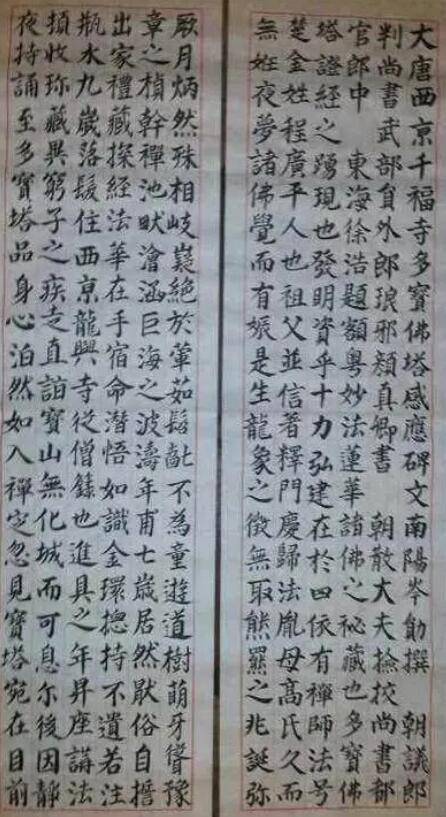 大唐西京千福寺多寶佛塔感應碑文南陽岑勛撰 朝議郎
判尚書武部員外郎琅邪顏真卿書 朝散大夫撿挍尚書都
官郎中 東海徐浩題額粵妙法蓮華諸佛之秘藏也多寶佛
塔證經之踴現也發明資乎十力弘建在於四依有禪師法号
楚金姓程廣平人也祖父並信著釋門慶歸法胤母高氏久而
無姙夜夢諸佛覺而有娠是生龍象之徵無取熊羆之兆誕弥
厥月炳然殊相岐嶷絕於葷茹髫齔不為童遊道樹萌牙聳豫
章之楨幹禪池畎澮涵巨海之波濤年甫七歲居然猒俗自誓
出家禮藏探經法華在手宿命潛悟如識金環揔持不遺若注
瓶水九歲落髮住西京龍興寺從僧籙也進具之年昇座講法
頓收珍藏異窮子之疾走直詣寶山無化城而可息尔後因靜
夜持誦至多寶塔品身心泊然如入禪定忽見寶塔宛在目前